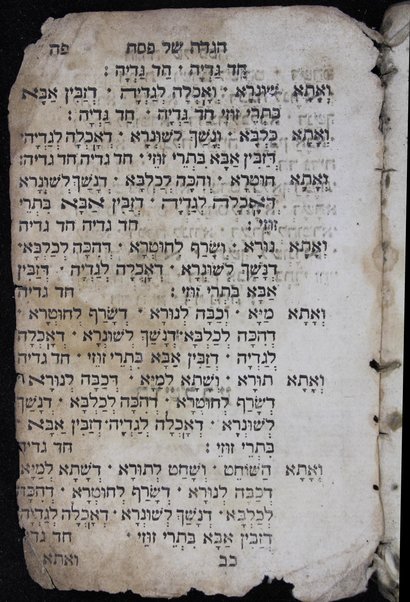 הגדה של פסח פה
חַד גַּדְיָה · חַד גַּדְיָה :
וְאָתָא שׁוּנְרָא · וְאָכְלָה לְגַדְיָה · דְזַבִּין אַבָּא
בִּתְרֵי זוּזֵי חַד גַּדְיָה · חַד גַּדְיָה :
וְאָתָא כַּלְבָּא · וְנָשַׁךְ לְשׁוּנְרָא · דְאָכְלָה לְגַדְיָה ·
דְזַבִּין אַבָּא בִּתְרֵי זוּזֵי · חד גדיה חד גדיה :
וְאָתָא חוּטְרָא · וְהִכָּה לְכַלְבָּא · דְנָשַׁךְ לְשׁוּנְרָא
דְאָכְלָה לְגַדְיָה · דְזַבִּין אַבָּא בִּתְרֵי
זוּזֵי : חד גדיה חד גדיה
וְאָתָא נוּרָא · וְשָׂרַף לְחוּטְרָא · דְהִכָּה לְכַלְבָּא ·
דְנָשַׁךְ לְשׁוּנְרָא · דְאָכְלָה לְגַדְיָה · דְזַבִּין
אַבָּא בִּתְרֵי זוּזֵי : חד גדיה
וְאָתָא מַיָּא · וְכָבָה לְנוּרָא · דְשָׂרַף לְחוּטְרָא ·
דְהִכָּה לְכַלְבָּא · דְנָשַׁךְ לְשׁוּנְרָא · דְאָכְלָה
לְגַדְיָה · דְזַבִּין אַבָּא בִּתְרֵי זוּזֵי · חד גדיה
וְאָתָא תוֹרָא · וְשָׁתָא לְמַיָּא · דְכָבָה לְנוּרָא ·
דְשָׂרַף לְחוּטְרָא · דְהִכָּה לְכַלְבָּא · דְנָשַׁךְ
לְשׁוּנְרָא · דְאָכְלָה לְגַדְיָה · דְזַבִּין אַבָּא
בִּתְרֵי זוּזֵי : חד גדיה
וְאָתָא הַשּׁוֹחֵט · וְשָׁחַט לְתוֹרָא · דְשָׁתָא לְמַיָּא
דְכָבָה לְנוּרָא · דְשָׂרַף לְחוּטְרָא · דְהִכָּה
לְכַלְבָּא · דְנָשַׁךְ לְשׁוּנְרָא · דְאָכְלָה לְגַדְיָה
דְזַבִּין אַבָּא בִּתְרֵי זוּזֵי · חד גדיה
כב ואתא